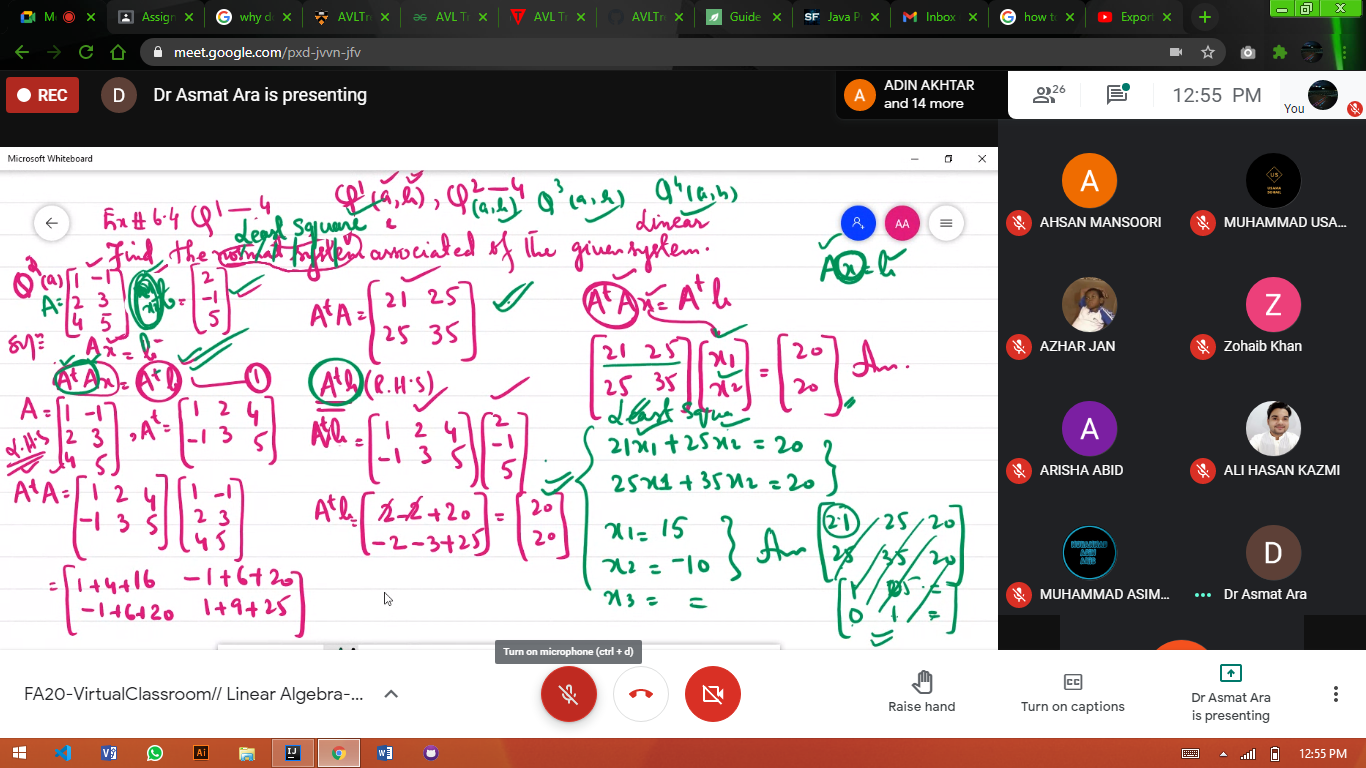 M
Assign
why d
AVLTr
AVL Tr
AVL Tr
AVLTr
Guide
Java P
Inbox
how t
Export
meet.google.com/pxd-jvvn-jfv
REC
D
Dr Asmat Ara is presenting
A
ADIN AKHTAR
and 14 more
26
12:55 PM
You
Microsoft Whiteboard
AA
Ex# 6.4 Q1—4
Q1(a,b), Q2—4
(a,b) Q3(a,b) Q4(a,b)
Least Square
Linear
Find the normal system associated of the given system.
Ax=b
Q2(a)
A= [1 -1
2 3
4 5]
b= [2
-1
5]
Ax=b
AtAx=Atb — 1
A= [1 -1
2 3
4 5] , At= [1 2 4
-1 3 5]
L.H.S
AtA= [1 2 4
-1 3 5] [1 -1
2 3
4 5]
= [1+4+16 -1+6+20
-1+6+20 1+9+25]
AtA= [21 25
25 35]
Atb (R.H.S)
Atb= [1 2 4
-1 3 5] [2
-1
5]
Atb= [2-2+20
-2-3+25] = [20
20]
AtAx=Atb
[21 25
25 35] [x1
x2] = [20
20] Ans.
Least Square
21x1+25x2=20
25x1+35x2=20
x1=15
x2=-10 Ans
x3= =
[21 25 20
25 35 20]
0 1 =
A
AHSAN MANSOORI
US
USAMA
SOHAIL
MUHAMMAD USA...
AZHAR JAN
Z
Zohaib Khan
A
ARISHA ABID
ALI HASAN KAZMI
MUHAMMAD
ASIM
ABID
MUHAMMAD ASIM...
D
Dr Asmat Ara
Turn on microphone (ctrl + d)
FA20-VirtualClassroom// Linear Algebra-...
Raise hand
Turn on captions
Dr Asmat Ara
is presenting
12:55 PM